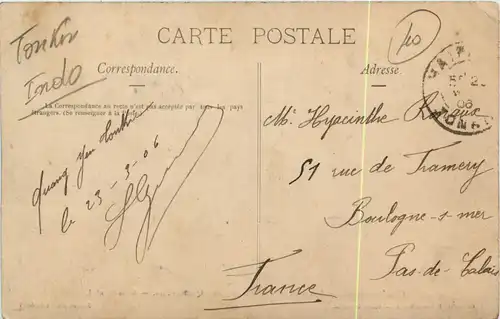 Tonkin
Indo
CARTE POSTALE
10
Correspondance.
Adresse.
La Correspondance au recto n'est pas acceptée par tous les pays
étrangers, che renseigner à la Poste.
Quang Yen Tonkin
le 23-3-06
Mr. Hyacinthe
51 rue de Tramery
Boulogne-s-mer
Pas-de-Calais
France
06